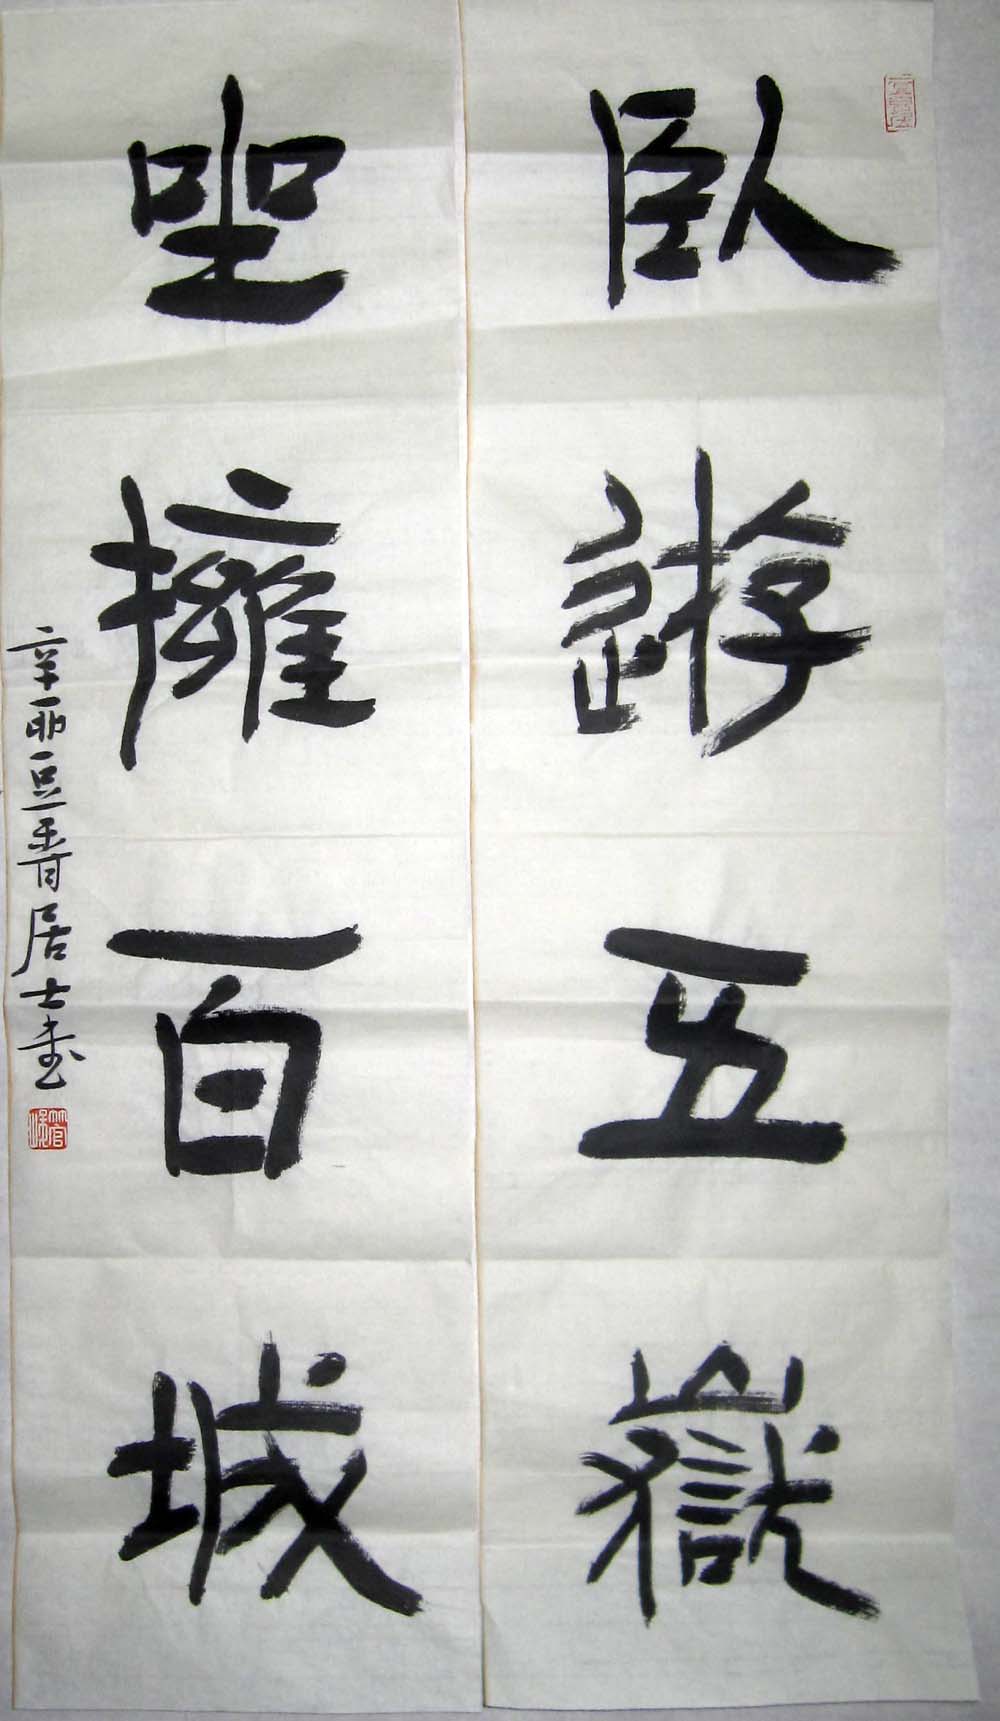 臥遊五嶽
坐擁百城
辛卯豆青居士書